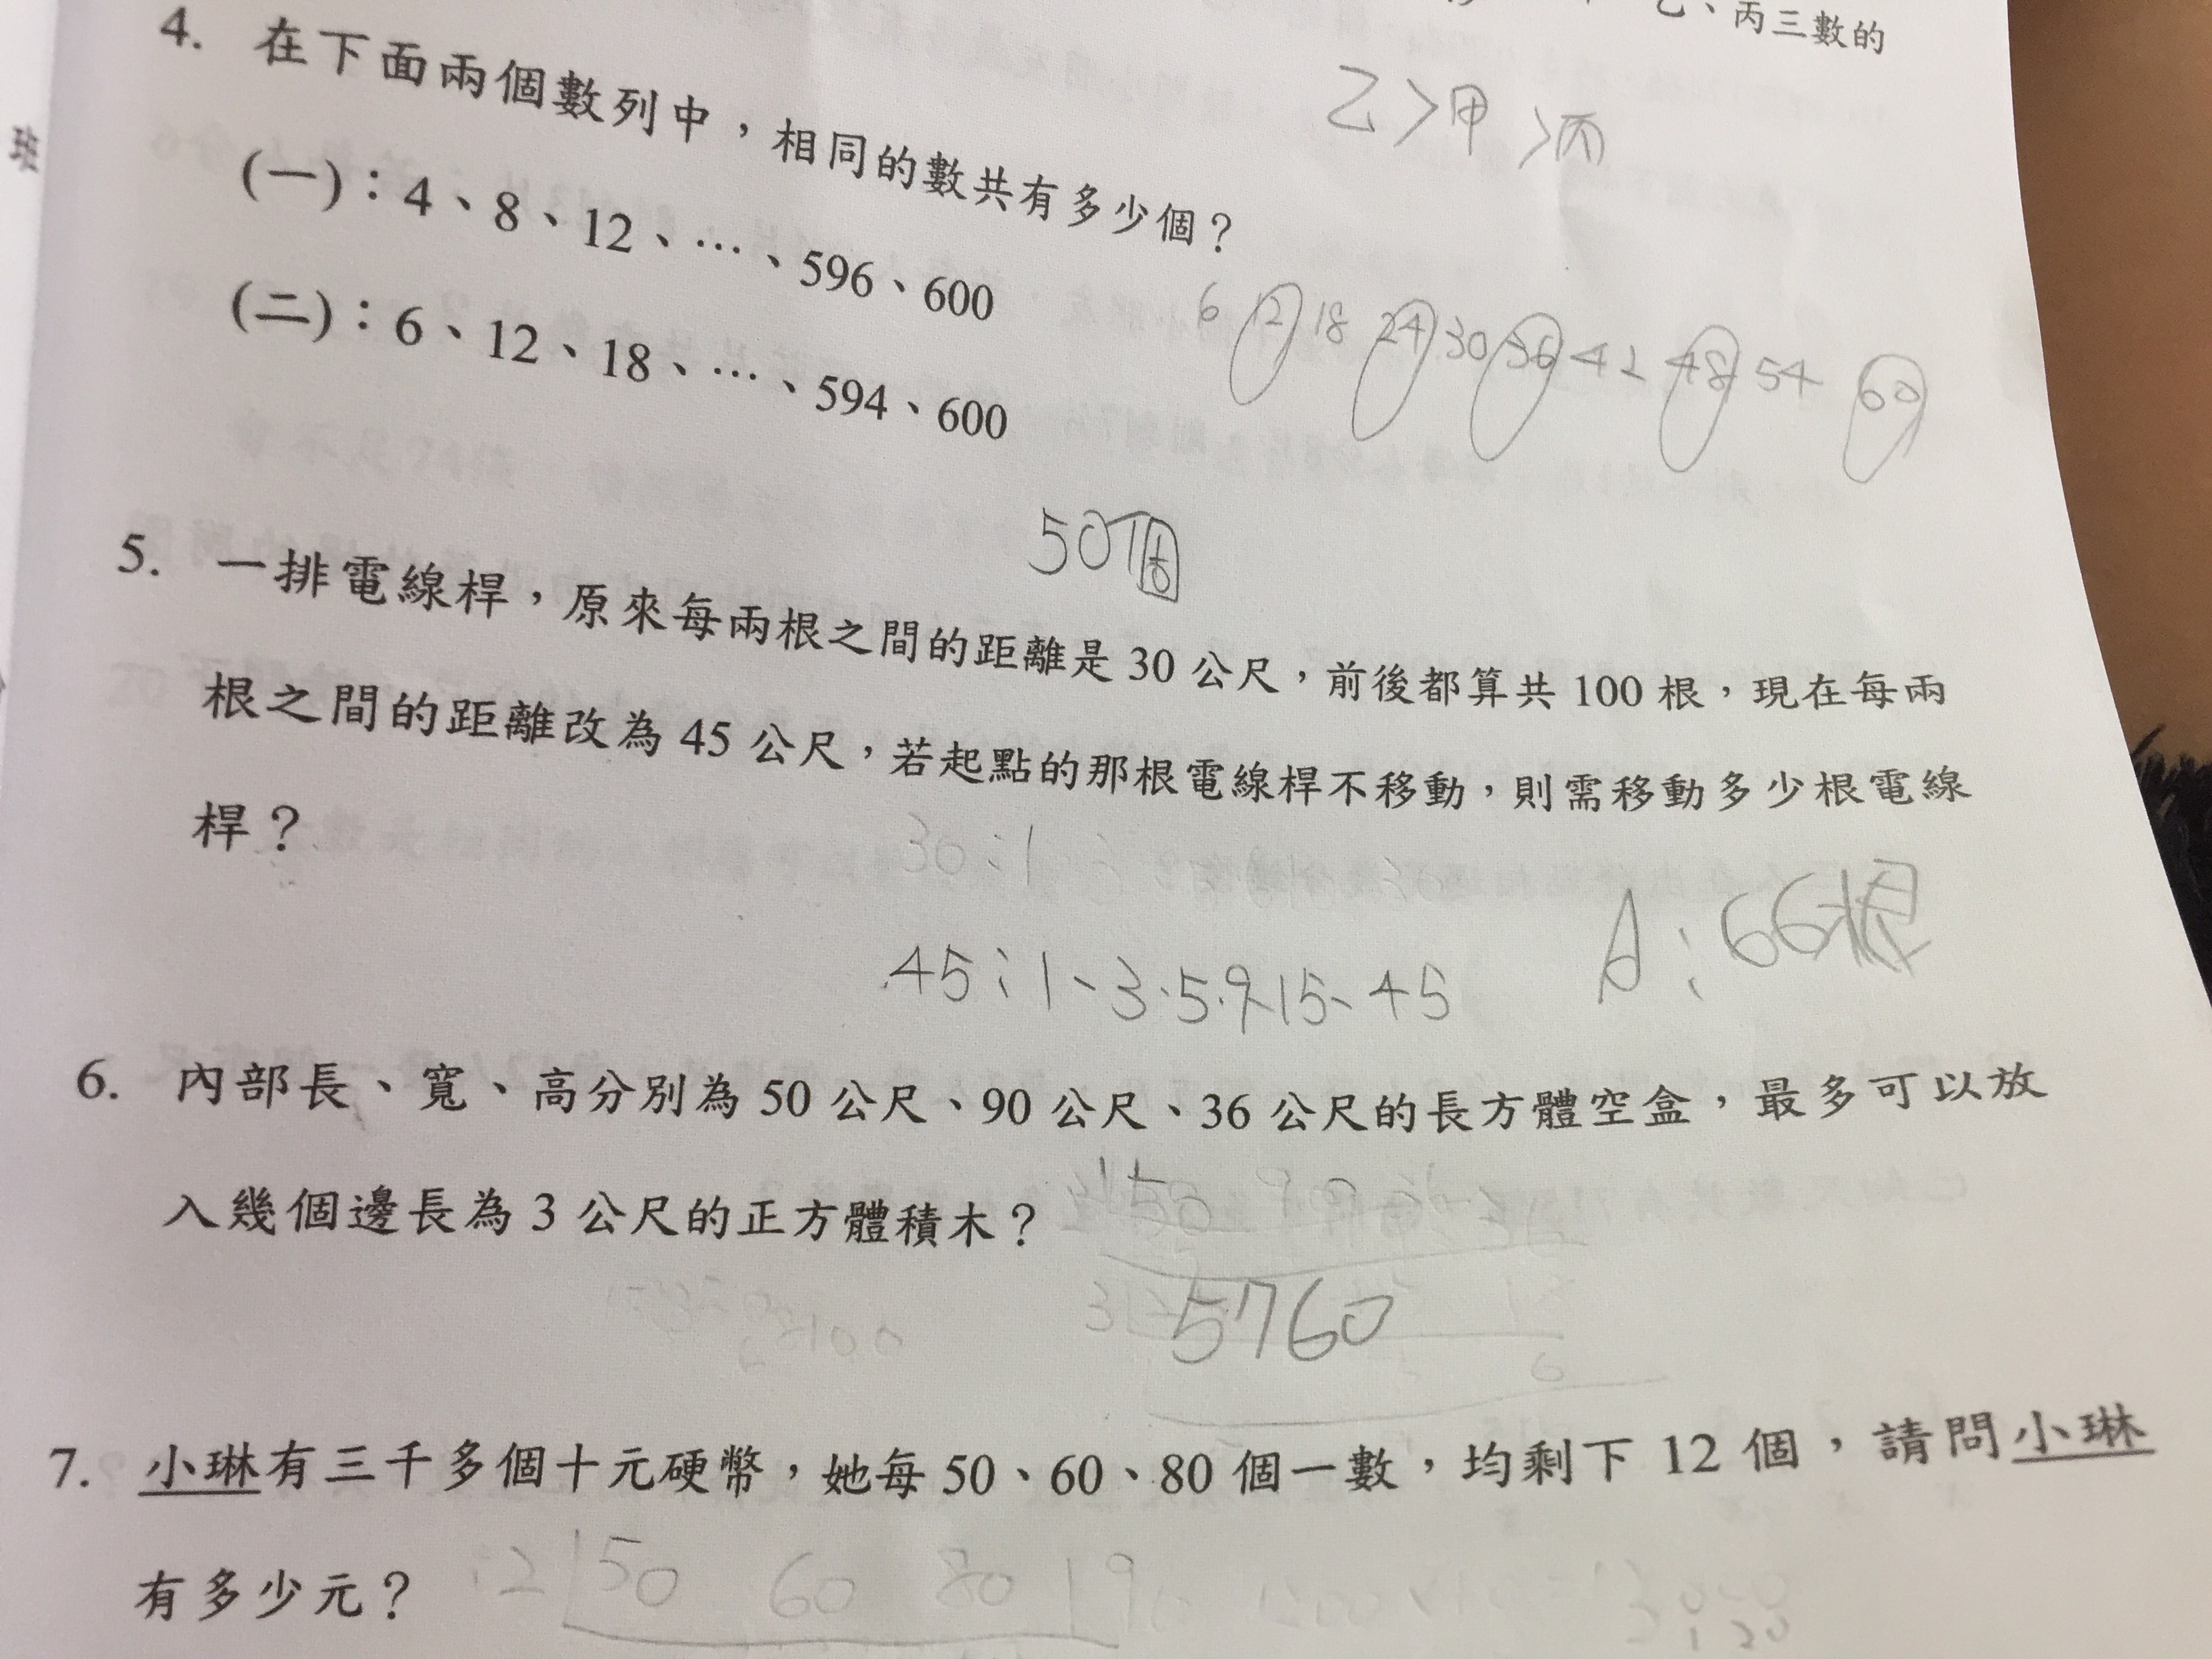 乙、丙三數的
乙>甲>丙
4. 在下面兩個數列中，相同的數共有多少個？
(一)：4、8、12、…、596、600
(二)：6、12、18、…、594、600
6 12 18 24 30 36 42 48 54 60
50個
5. 一排電線桿，原來每兩根之間的距離是 30 公尺，前後都算共 100 根，現在每兩
根之間的距離改為 45 公尺，若起點的那根電線桿不移動，則需移動多少根電線
桿？
45：1、3、5、9、15、45
A：66根
6. 內部長、寬、高分別為 50 公尺、90 公尺、36 公尺的長方體空盒，最多可以放
入幾個邊長為 3 公尺的正方體積木？
5760
7. 小琳有三千多個十元硬幣，她每 50、60、80 個一數，均剩下 12 個，請問小琳
有多少元？
2 50 60 80